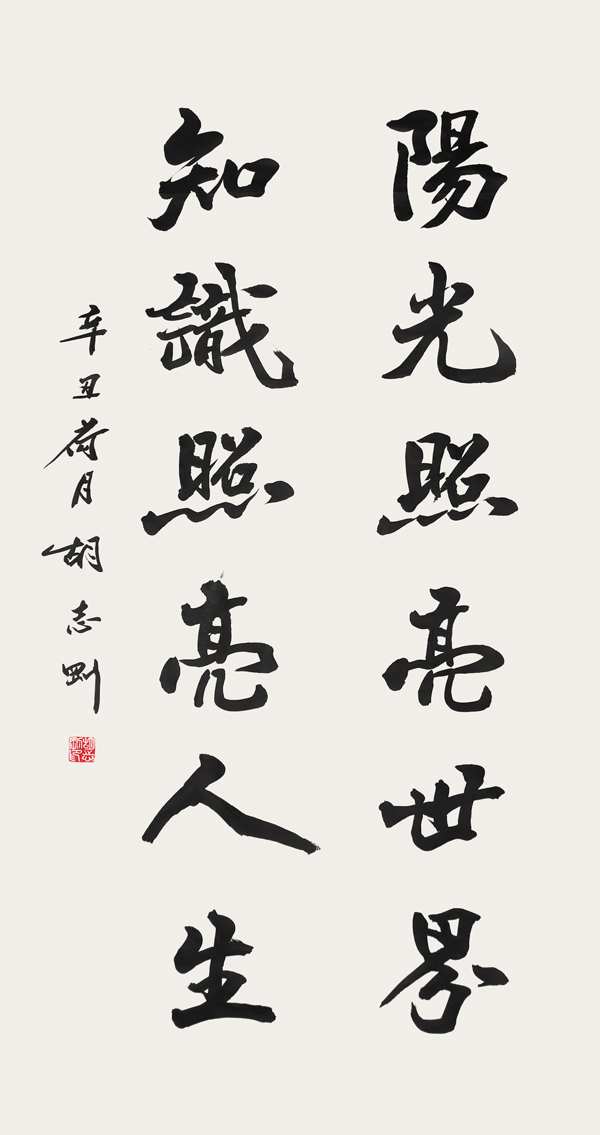 陽光照亮世界
知識照亮人生
辛丑荷月胡志剛